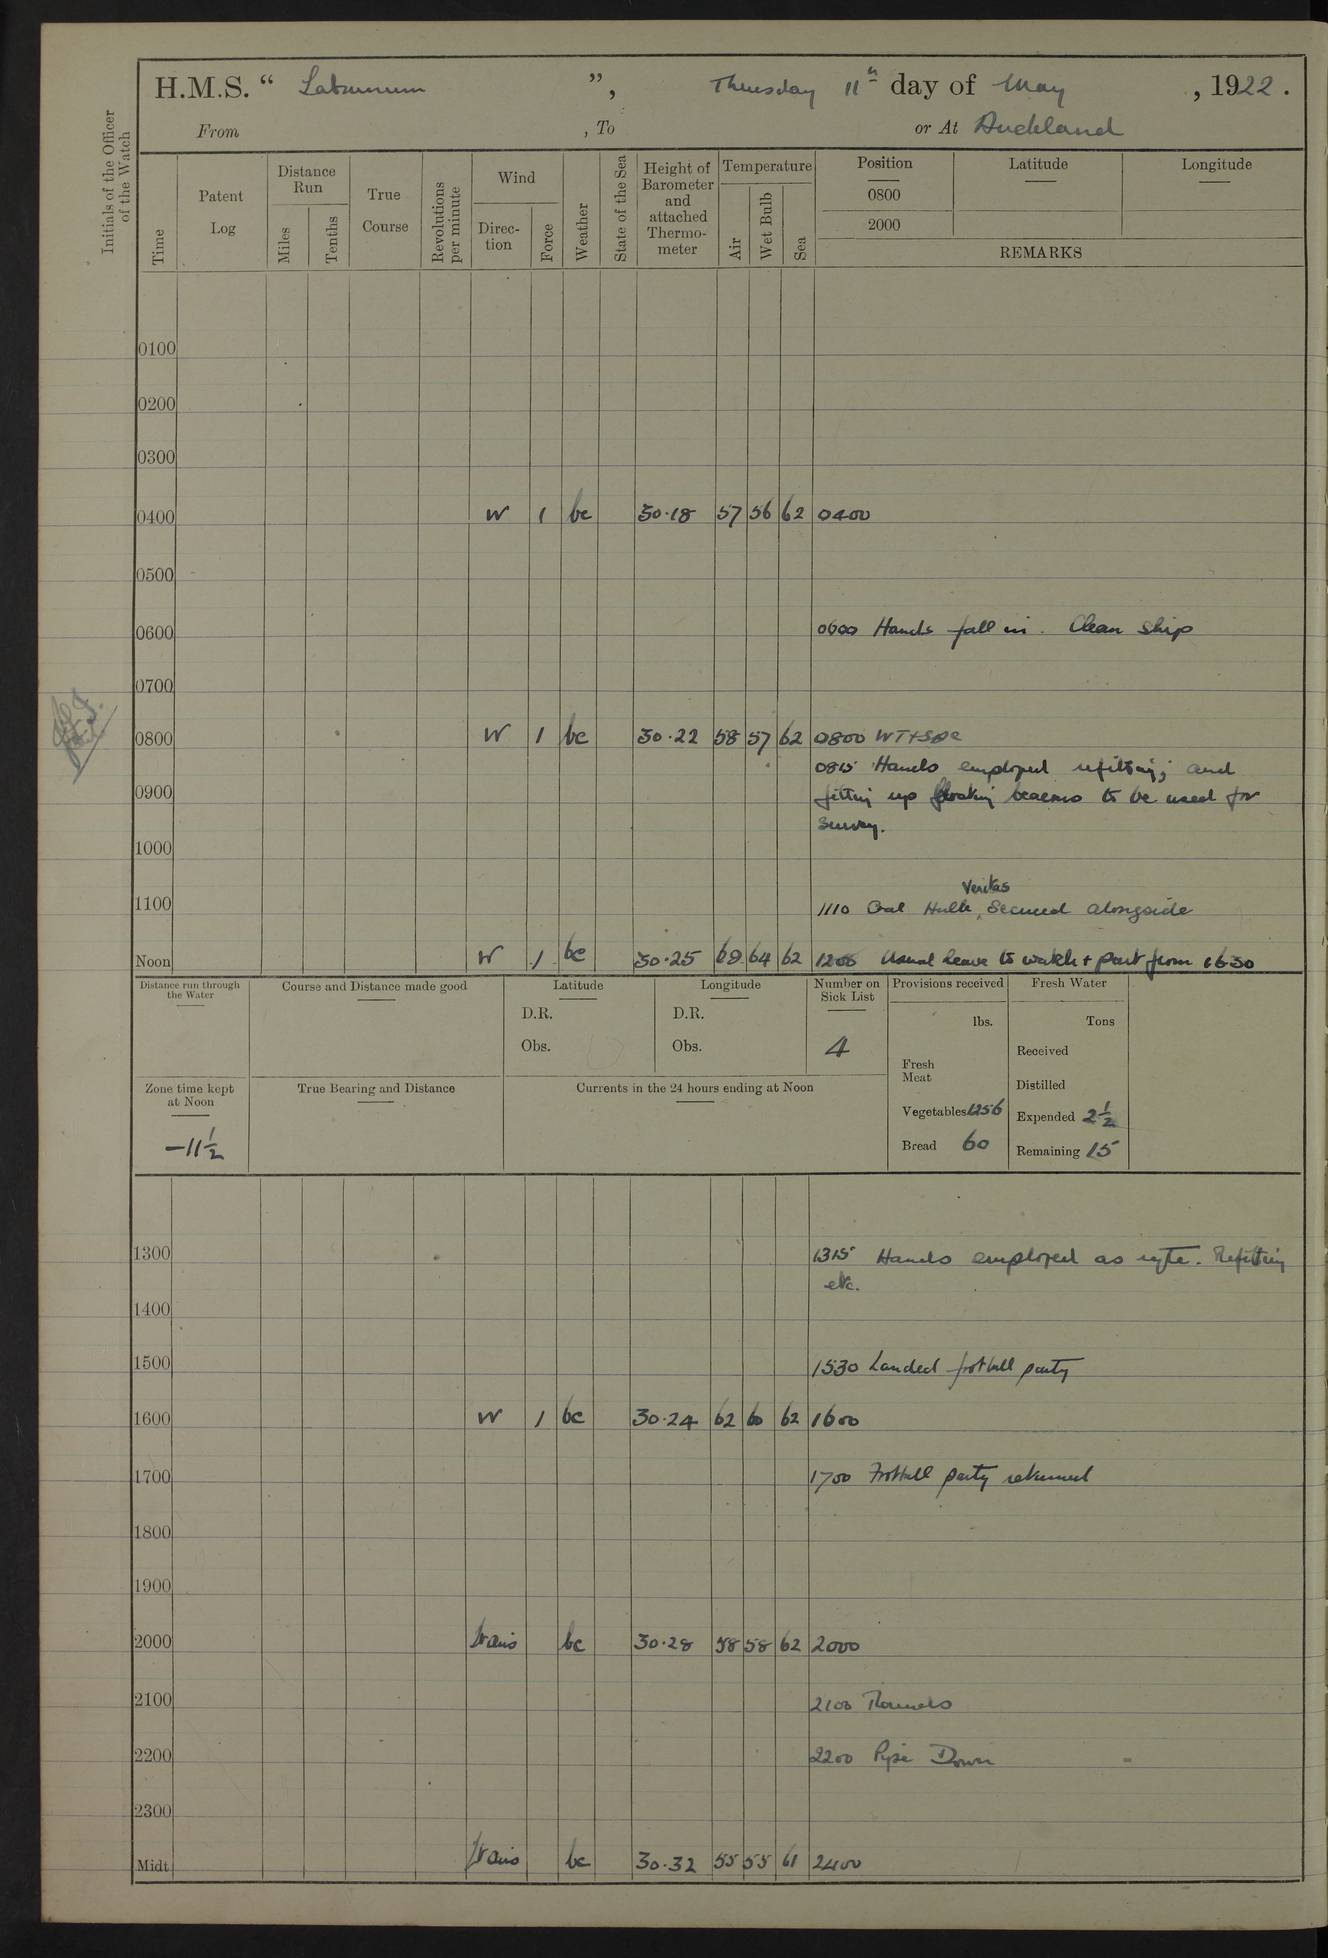 H.M.S. “ Laburnum ”, Thursday 11th day of May , 1922 .
From , To or At Auckland
Initials of the Officer of the Watch
Time
Patent Log
Distance Run
Miles
Tenths
True Course
Revolutions per minute
Wind
Direction
Force
Weather
State of the Sea
Height of Barometer and attached Thermometer
Temperature
Air
Wet Bulb
Sea
Position Latitude Longitude
0800
2000
REMARKS
0100
0200
0300
0400 W 1 bc 30.18 57 56 62 0400
0500
0600 0600 Hands fall in. Clean Ship
0700
0800 W 1 bc 30.22 58 57 62 0800
0815 Hands employed refitting; and
0900 fitting up floating beacons to be used for
survey.
1000
Veritas
1100 1110 Coal Hulk, Secured alongside
Noon W 1 bc 30.25 64 62 1200 Usual leave to watch & part from 1630
Distance run through the Water
Course and Distance made good
Latitude
D.R.
Obs.
Longitude
D.R.
Obs.
Number on Sick List
4
Provisions received
lbs.
Fresh Meat
Vegetables 1256
Bread 60
Fresh Water
Tons
Received
Distilled
Expended 2½
Remaining 15
Zone time kept at Noon
–11½
True Bearing and Distance
Currents in the 24 hours ending at Noon
1300 1315 Hands employed as reqte. Refitting
etc.
1400
1500 1530 Landed football party
1600 W 1 bc 30.24 62 60 62 1600
1700 1700 Football party returned
1800
1900
2000 bc 30.28 58 58 62 2000
2100 2100 Rounds
2200 2200 Pipe Down
2300
Midt bc 30.32 55 55 61 2400